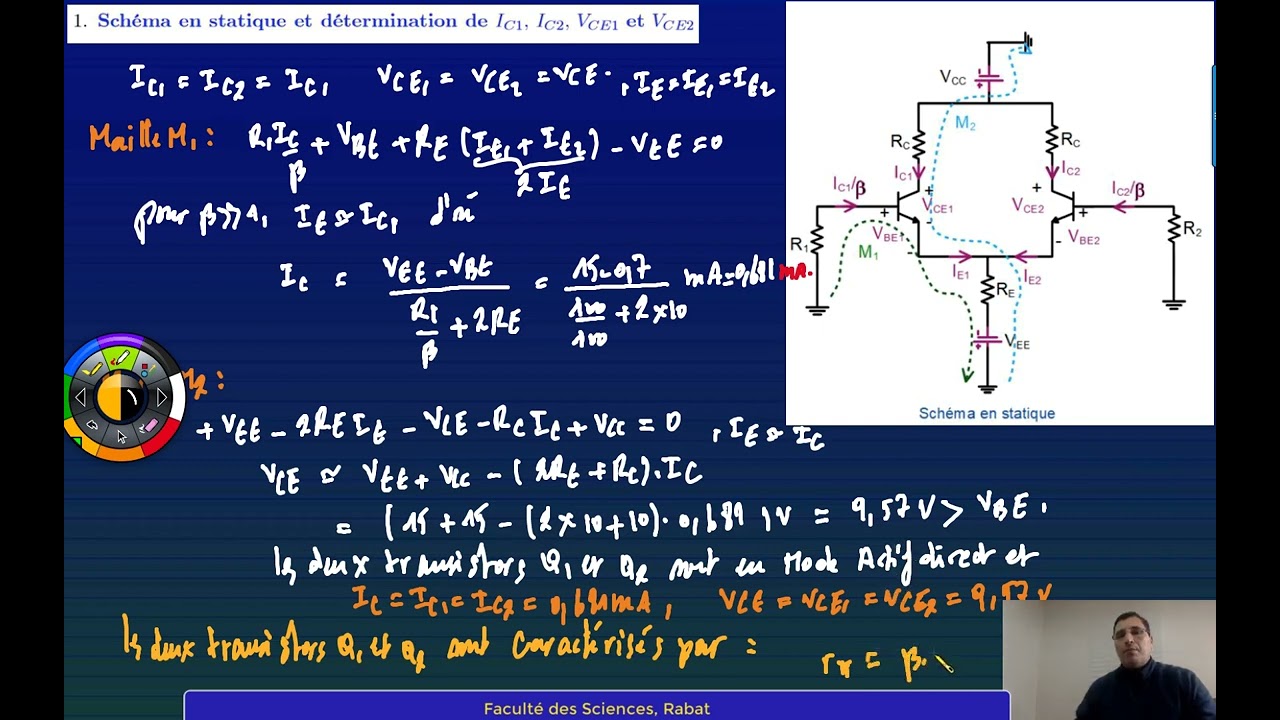 1. Schéma en statique et détermination de I_C1, I_C2, V_CE1 et V_CE2
I_C1 = I_C2 = I_C, V_CE1 = V_CE2 = V_CE. , I_E = I_E1 = I_E2
Maille M1 : R1 I_C/β + V_BE + R_E (I_E1 + I_E2) - V_EE = 0
2 I_E
pour β >> 1, I_E ≃ I_C, d'où
I_C = (V_EE - V_BE) / (R1/β + 2R_E) = (15 - 0,7) / (100/100 + 2×10) mA = 0,681 mA.
M2 :
+ V_EE - 2R_E I_E - V_CE - R_C I_C + V_CC = 0 , I_E ≃ I_C
V_CE ≃ V_EE + V_CC - (2R_E + R_C). I_C
= (15 + 15 - (2×10+10). 0,681 ) V = 9,57 V > V_BE .
les deux transistors Q1 et Q2 sont en Mode Actif direct et
I_C = I_C1 = I_C2 = 0,681 mA, V_CE = V_CE1 = V_CE2 = 9,57 V
les deux transistors Q1 et Q2 sont caractérisés par :
r_π = β.
V_CC
M2
R_C
R_C
I_C1
I_C2
I_C1/β
I_C2/β
+
+
V_CE1
V_CE2
+
+
V_BE1
V_BE2
-
-
R1
R2
M1
I_E1
I_E2
R_E
V_EE
Schéma en statique
Faculté des Sciences, Rabat